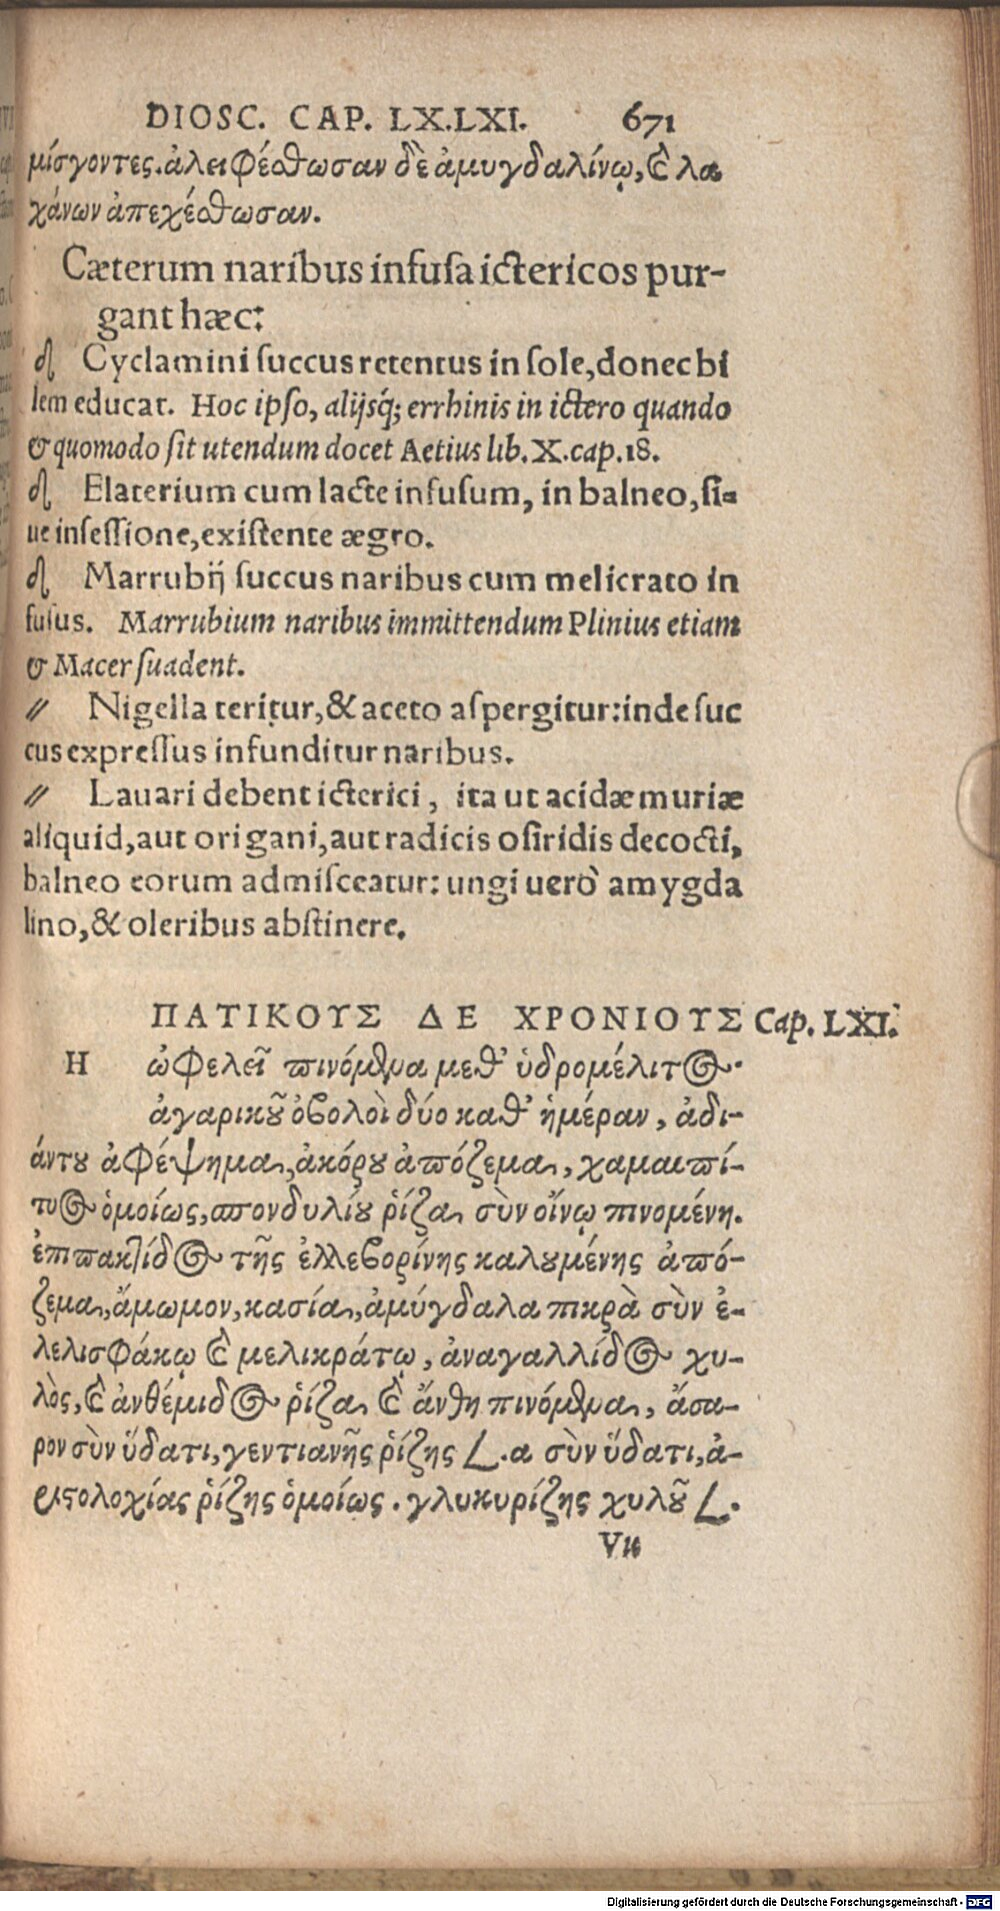 DIOSC. CAP. LX.LXI. 671
μίσγοντες. ἀλειφέσθωσαν δὲ ἀμυγδαλίνῳ, ϗ λα
χάνων ἀπεχέσθωσαν.
Cæterum naribus infusa ictericos pur-
gant hæc:
Cyclamini succus retentus in sole, donec bi
lem educat. Hoc ipso, alijsq́; errhinis in ictero quando
& quomodo sit utendum docet Aetius lib. X. cap. 18.
Elaterium cum lacte infusum, in balneo, si-
ue insessione, existente ægro.
Marrubij succus naribus cum melicrato in
fusus. Marrubium naribus immittendum Plinius etiam
& Macer suadent.
// Nigella teritur, & aceto aspergitur: inde suc
cus expressus infunditur naribus.
// Lauari debent icterici, ita ut acidæ muriæ
aliquid, aut origani, aut radicis osiridis decocti,
balneo eorum admisceatur: ungi uerò amygda
lino, & oleribus abstinere.
ΠΑΤΙΚΟΥΣ ΔΕ ΧΡΟΝΙΟΥΣ Cap. LXI.
Η ὠφελεῖ πινόμενα μεθ’ ὑδρομέλιτος·
ἀγαρικοῦ ὀβολοὶ δύο καθ’ ἡμέραν, ἀδι-
άντου ἀφέψημα, ἀκόρου ἀπόζεμα, χαμαιπί-
τυος ὁμοίως, σπονδυλίου ῥίζα σὺν οἴνῳ πινομένη.
ἐπιπακτίδος τῆς ἐλλεβορίνης καλουμένης ἀπό-
ζεμα, ἄμωμον, κασία, ἀμύγδαλα πικρὰ σὺν ἐ-
λελισφάκῳ ϗ μελικράτῳ, ἀναγαλλίδος χυ-
λὸς, ϗ ἀνθέμιδος ῥίζα ϗ ἄνθη πινόμενα, ἄσα-
ρον σὺν ὕδατι, γεντιανῆς ῥίζης 𐅻. α σὺν ὕδατι, ἀ-
ριστολοχίας ῥίζης ὁμοίως. γλυκυρίζης χυλοῦ 𐅻.
Vu
Digitalisierung gefördert durch die Deutsche Forschungsgemeinschaft - DFG